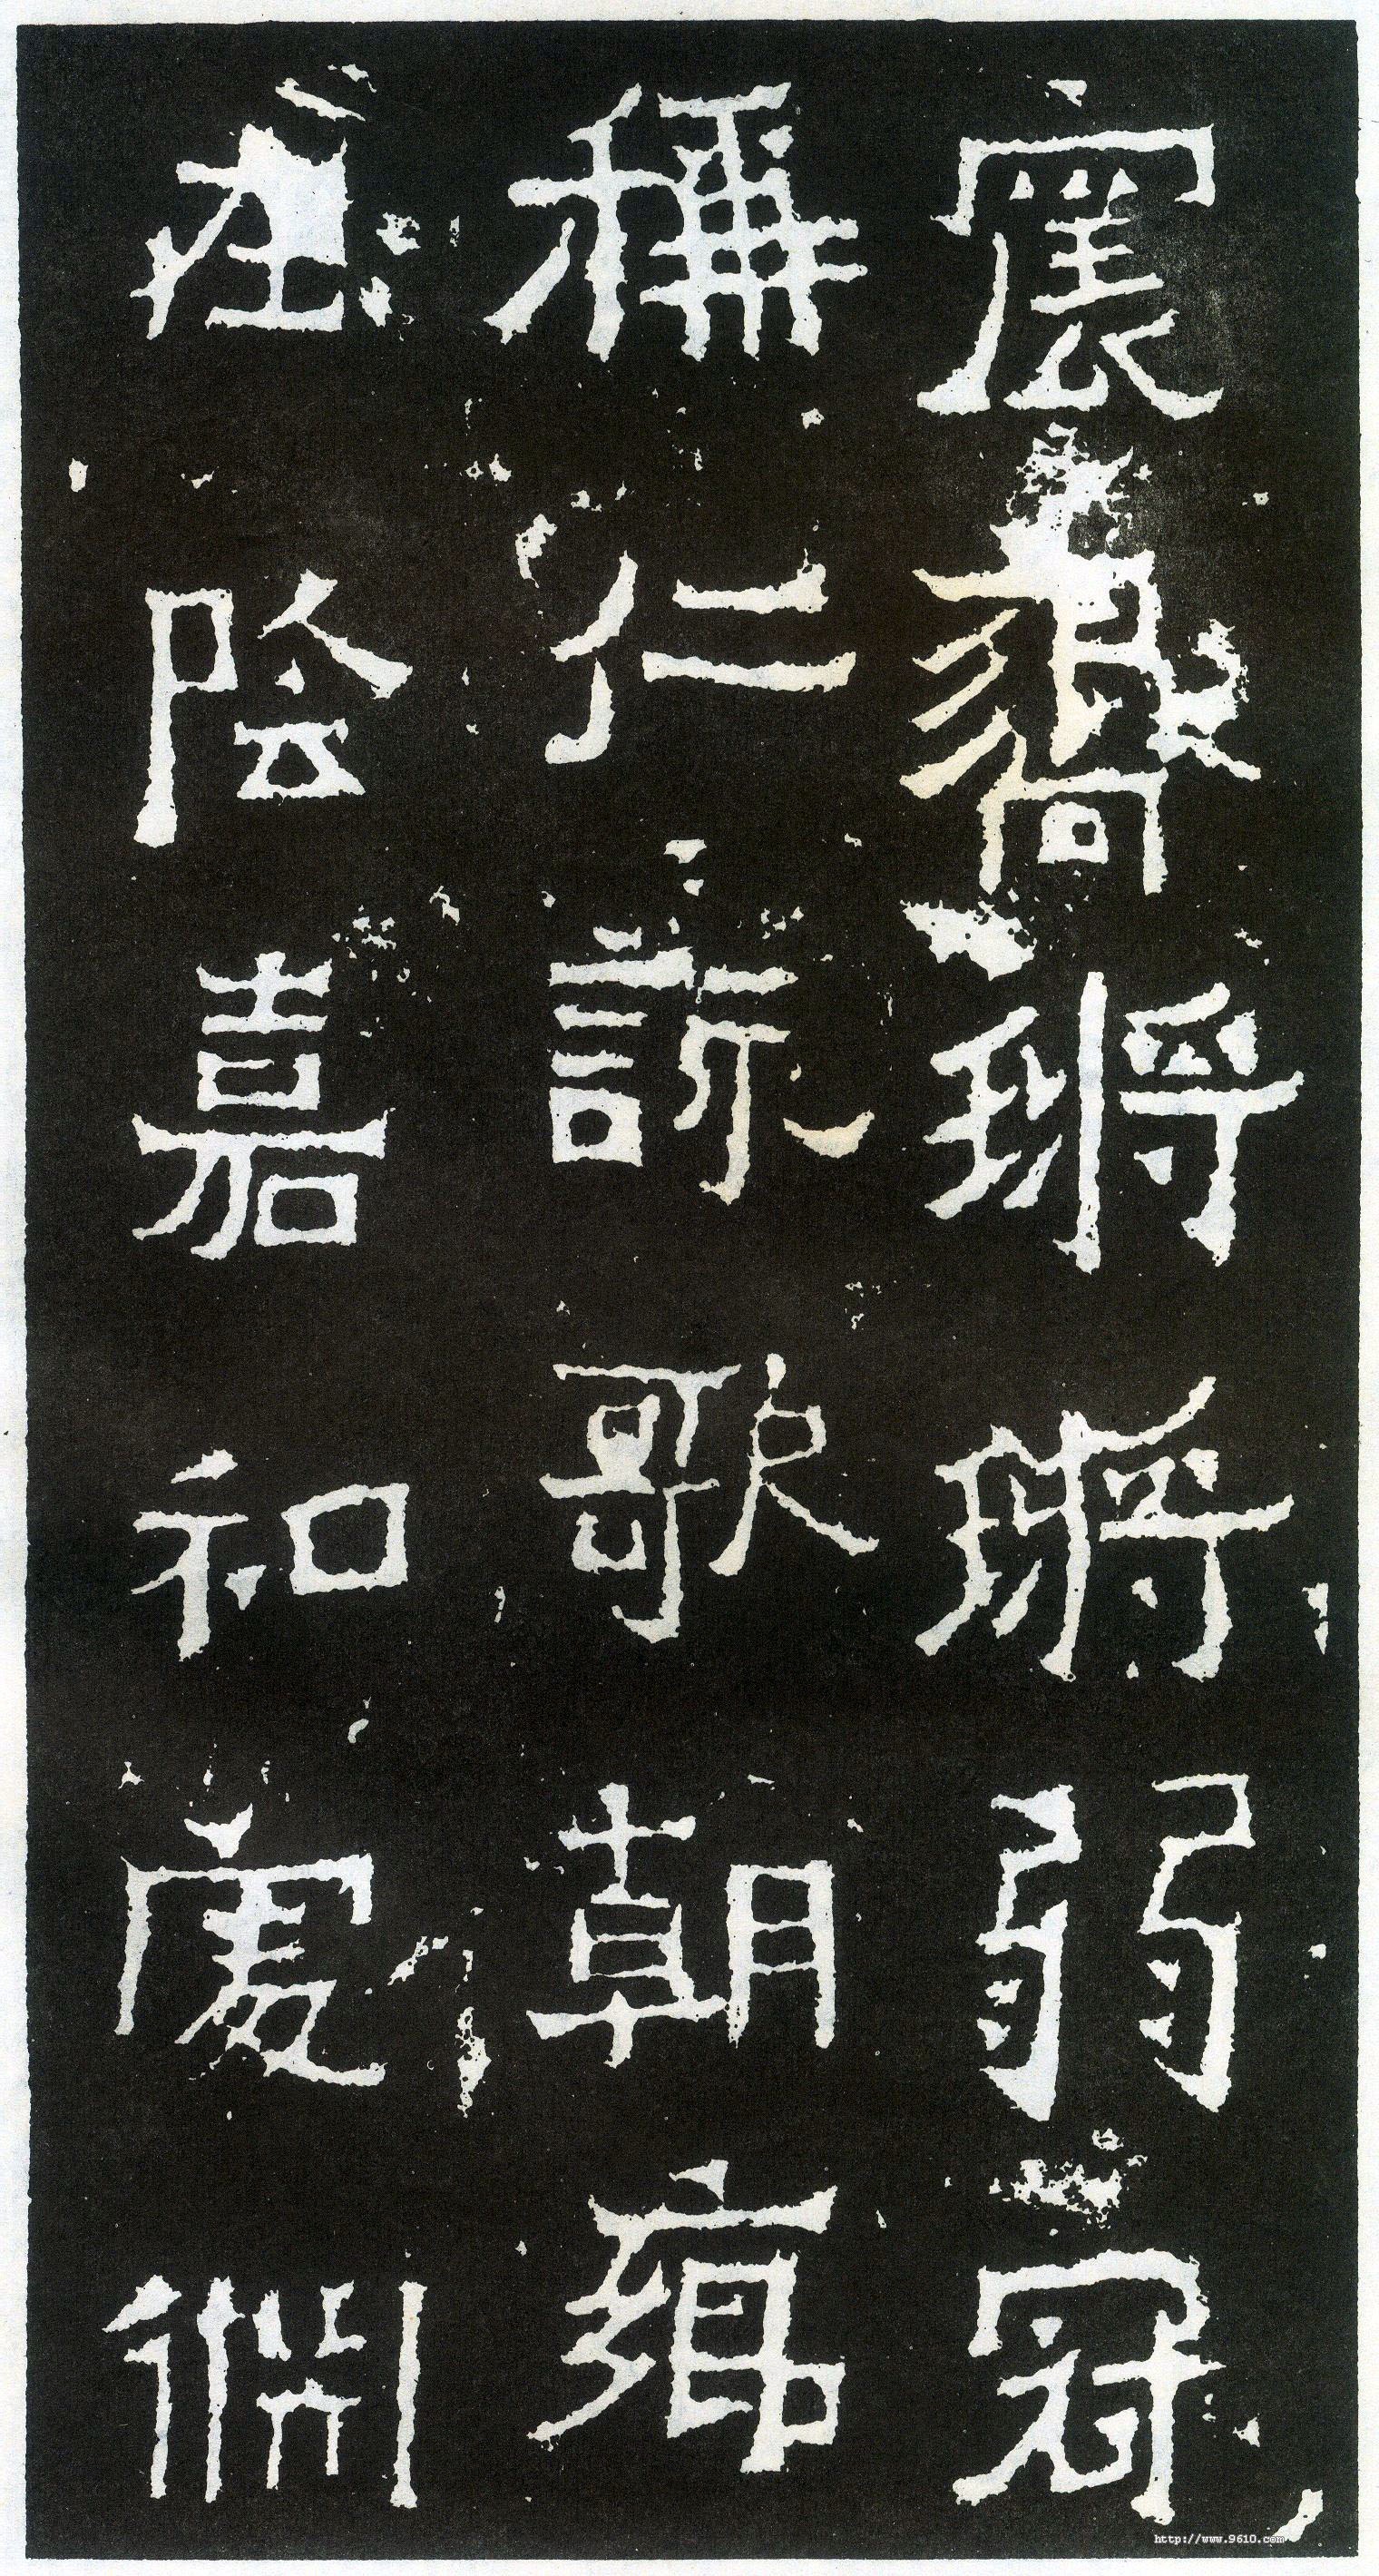 震響鏘鏘弱冠
稱仁詠歌朝鄉
在陰嘉和處淵
http://www.9610.com